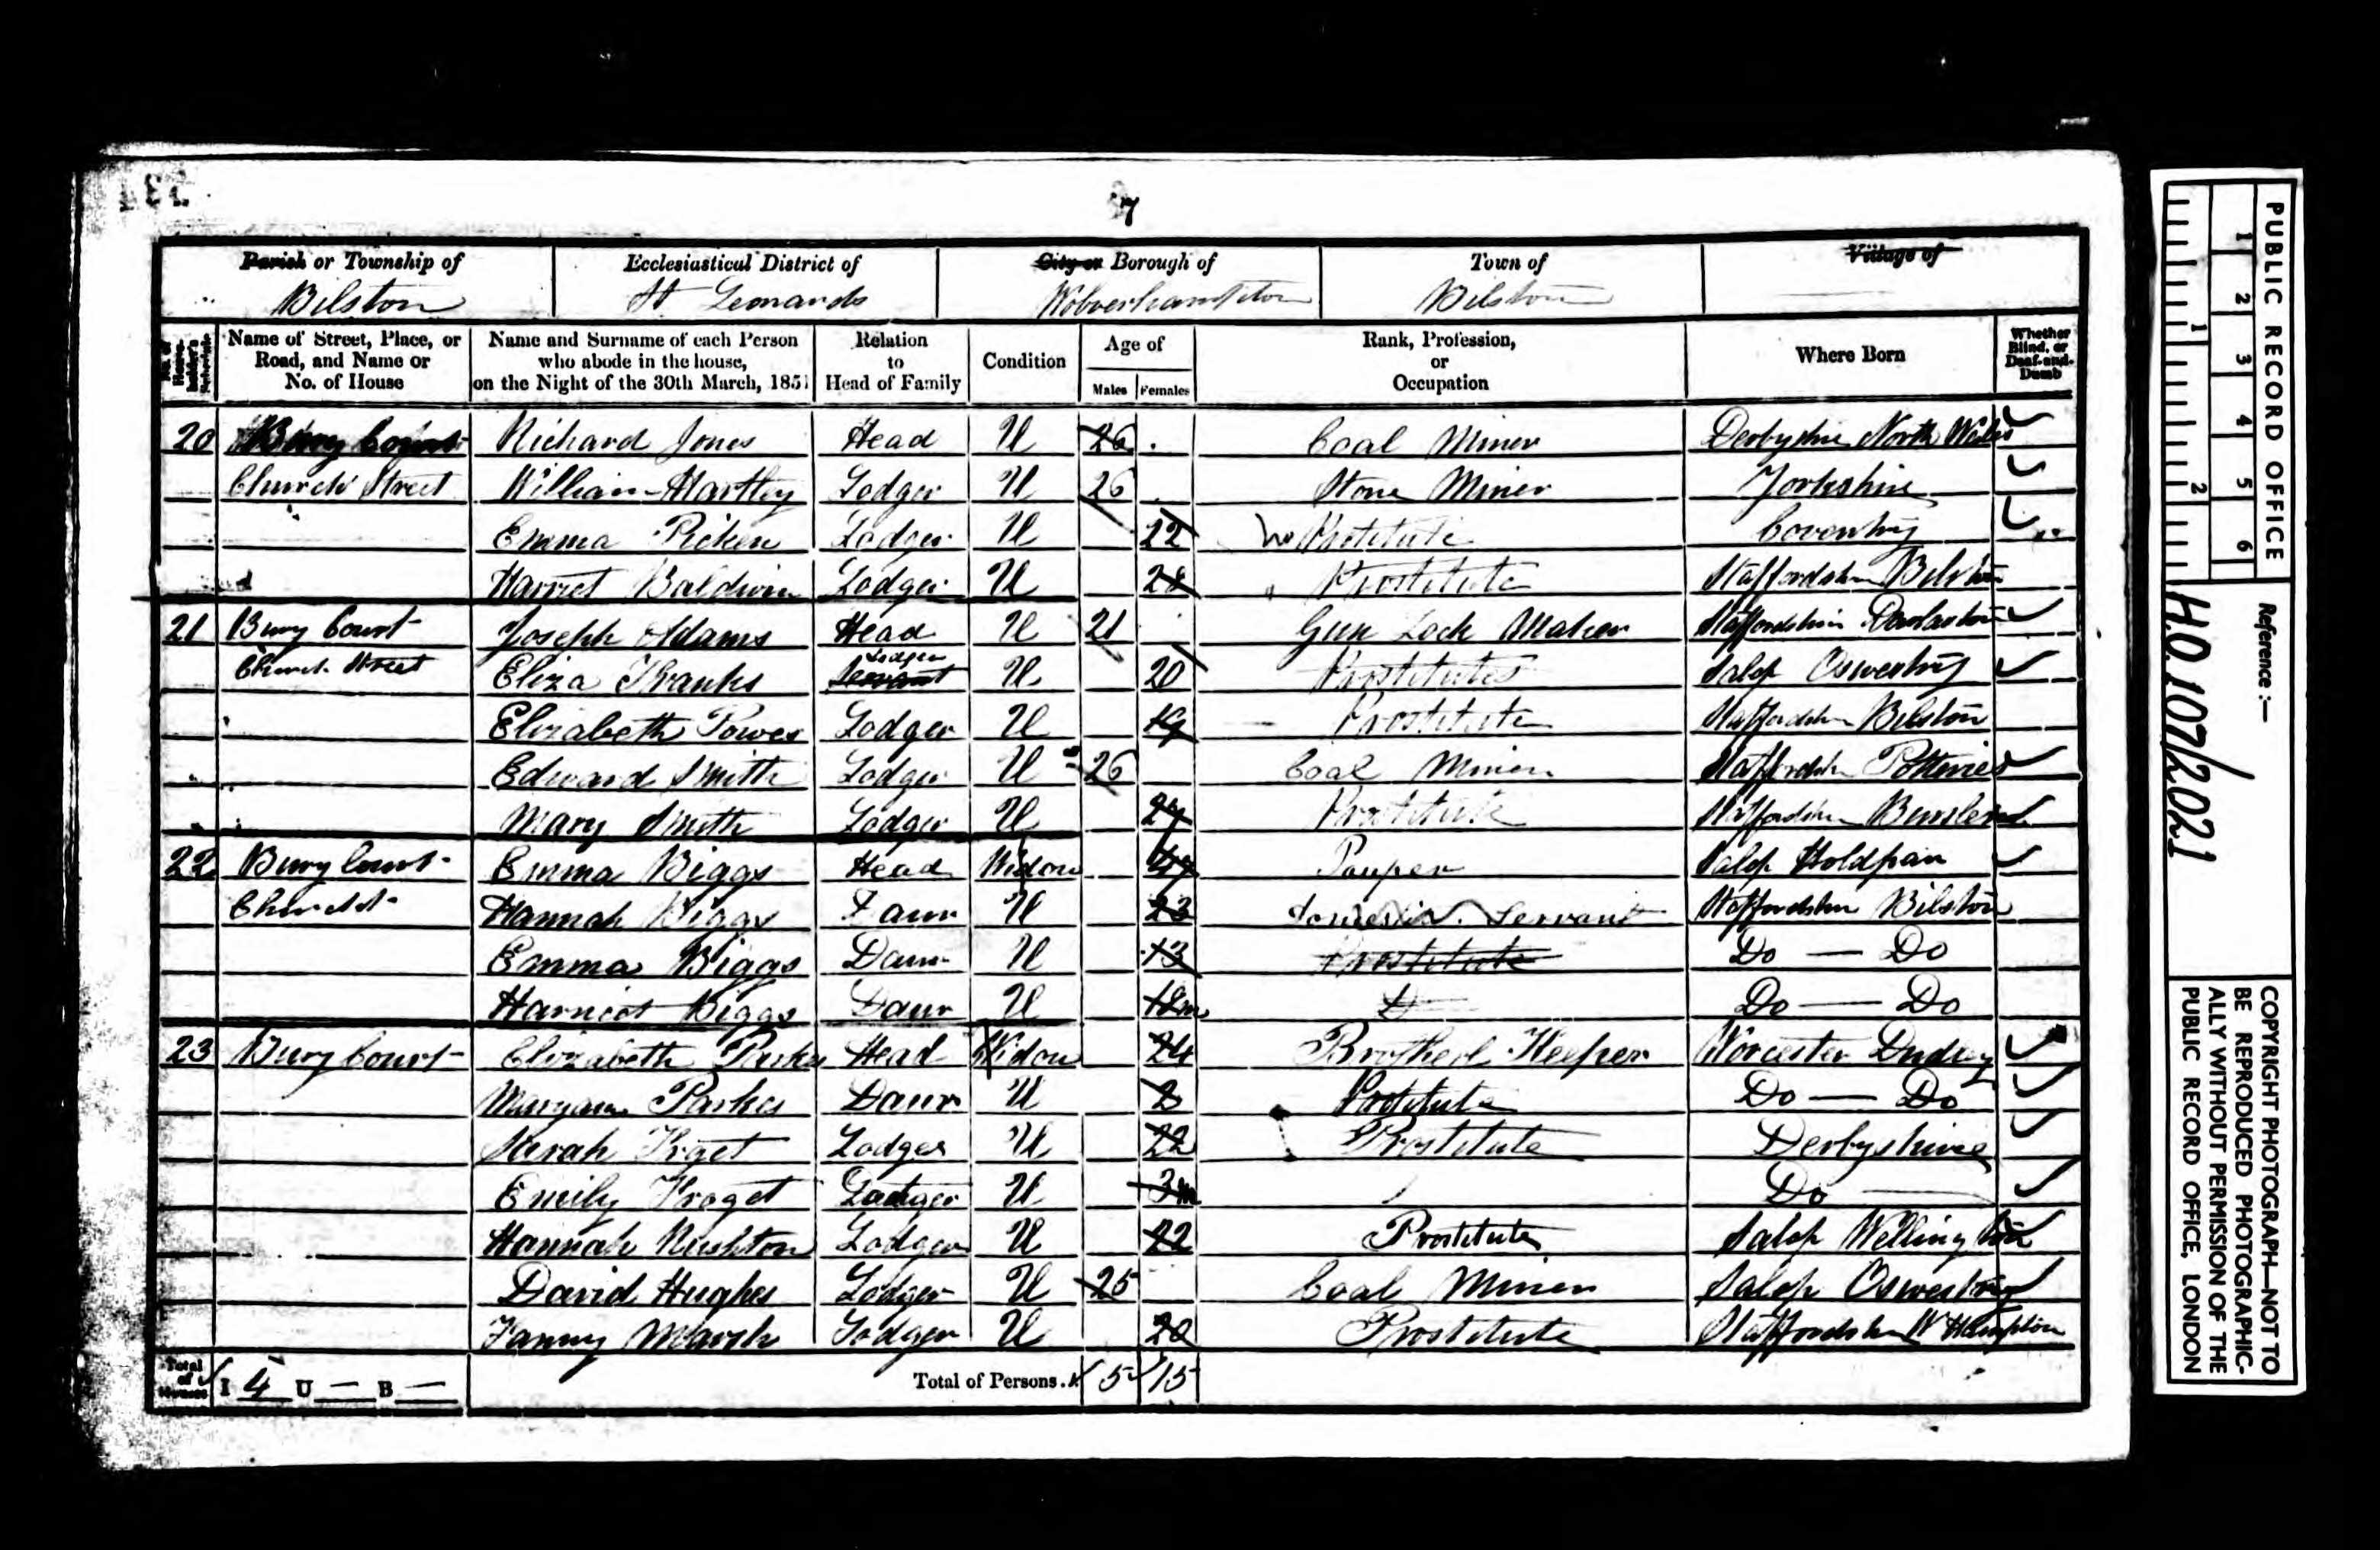 7
Parish or Township of Ecclesiastical District of City or Borough of Town of Village of
Bilston St Leonards Wolverhampton Bilston
No. of House-holder's Schedule Name of Street, Place, or Road, and Name or No. of House Name and Surname of each Person who abode in the house, on the Night of the 30th March, 1851 Relation to Head of Family Condition Age of Males Females Rank, Profession, or Occupation Where Born Whether Blind, or Deaf-and-Dumb
20 Bury Court Richard Jones Head U 26 Coal Miner Derbyshire North Wales
Church Street William Hartley Lodger U 26 Stone Miner Yorkshire
Emma Picken Lodger U 22 Prostitute Coventry
Harriet Baldwin Lodger U 28 Prostitute Staffordshire Bilston
21 Bury Court Joseph Adams Head U 21 Gun Lock Maker Staffordshire Darlaston
Church Street Eliza Franks Servant Lodger U 20 Prostitutes Salop Oswestry
Elizabeth Powes Lodger U 19 Prostitute Staffordshire Bilston
Edward Smith Lodger U 26 Coal Miner Staffordshire Potteries
Mary Smith Lodger U Prostitute Staffordshire Burslem
22 Bury Court Emma Biggs Head Widow 47 Pauper Salop
Church St Hannah Biggs Daur U 23 Domestic Servant Staffordshire Bilston
Emma Biggs Daur U 13 Prostitute Do — Do
Harriot Biggs Daur U 18m D Do — Do
23 Bury Court Elizabeth Parkes Head Widow 24 Brothel Keeper Worcester Dudley
Maryann Parkes Daur U Prostitute Do — Do
Sarah Froget Lodger U 22 Prostitute Derbyshire
Emily Froget Lodger U 3m Do
Hannah Rushton Lodger U 22 Prostitute Salop Wellington
David Hughes Lodger U 25 Coal Miner Salop Oswestry
Fanny Marsh Lodger U 20 Prostitute Staffordshire W Hampton
Total of Houses I 4 U — B — Total of Persons 5 15
PUBLIC RECORD OFFICE
1 2 3 4 5 6
1 2
Reference :—
H.O. 107/2021
COPYRIGHT PHOTOGRAPH—NOT TO
BE REPRODUCED PHOTOGRAPHIC-
ALLY WITHOUT PERMISSION OF THE
PUBLIC RECORD OFFICE, LONDON